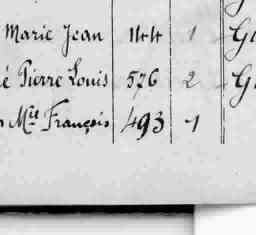 Marie Jean 1144 1 G
é Pierre Louis 576 2 G
Mie François 493 1